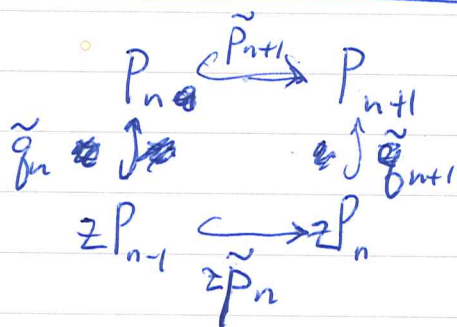 p̃ₙ₊₁
Pₙ Pₙ₊₁
q̃ₙ q̃ₙ₊₁
zPₙ₋₁ zPₙ
zp̃ₙ